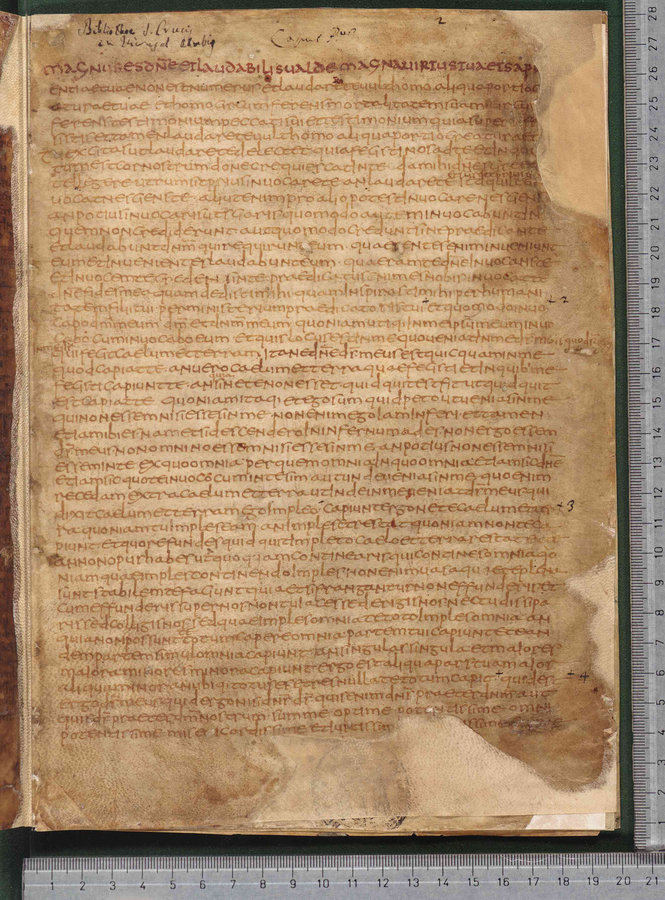 Bibliothecae S. Crucis
in Hierusal
2
MAGNUS ES DÑE ET LAUDABILIS VALDE MAGNA VIRTUS TUA ET SAPI
entiae tuae non est numerus et laudare te vult homo aliqua portio
creaturae tuae et homo circumferens mortalitatem suam circum
ferens testimonium peccati sui et testimonium quia superbis re
sistis et tamen laudare te vult homo aliqua portio creaturae
tu excitas ut laudare te delectet quia fecisti nos ad te et inquie
tum est cor nostrum donec requiescat in te da mihi dne scire et in
tellegere utrum sit prius invocare te an laudare te et
vocat nesciens te aliut enim pro alio potest invocare nesciens
an potius invocaris ut sciaris quomodo autem invocabunt in
quem non crediderunt aut quomodo credunt sine praedicante
et laudabunt dnm qui requirunt eum quaerentes enim inveniunt
eum et invenientes laudabunt eum quaeram te dne invocans te
et invocem te credens in te praedicatus enim es nobis invocat te
dne fides mea quam dedisti mihi quam inspirasti mihi per humani
tatem filii tui per ministerium praedicatoris tui et quomodo invo
+ 2
cabo dm meum dm et dnm meum quoniam utique in me ipsum eum invo
cabo cum invocabo eum et quis locus est in me quo veniat in me ds meus
qui fecit caelum et terram itane dne ds meus est quicquam in me
quod capiat te an vero caelum et terra quae fecisti et in quibus me
fecisti capiunt te an sine te non esset quidquid est fit ut quidquid
est capiat te quoniam itaque et ego sum quid peto ut venias in me
qui non essem nisi esses in me non enim ego iam inferi et tamen
etiam ibi es nam etsi descendero in infernum ades non ergo essem
ds meus non omnino essem nisi esses in me an potius non essem nisi
essem in te ex quo omnia per quem omnia in quo omnia etiam sic dne
etiam sic quo te invoco cum in te sim aut unde venias in me quo enim
recedam extra caelum et terram ut inde in me veniat ds meus qui
dixit caelum et terram ego impleo capiunt ergone te caelum et ter
+ 3
ra quoniam tu imples ea an imples et restat quoniam non te ca
piunt et quo refundis quidquid impleto caelo et terra restat ex te
an non opus habes ut quoquam continearis qui contines omnia quo
niam quae imples continendo imples non enim vasa quae te plena
sunt stabilem te faciunt quia etsi frangantur non effunderis et
cum effunderis super nos non tu iaces sed erigis nos nec tu dissipa
ris sed colligis nos sed quae imples omnia te toto imples omnia an
quia non possunt te totum capere omnia partem tui capiunt et ean
dem partem simul omnia capiunt an singulas singula et maiores
maiora minores minora capiunt ergo est aliqua pars tua maior
aliqua minor an ubique totus es et res nulla te totum capit quid es
+ 4
ergo ds meus quid rogo nisi dns ds quis enim dns praeter dnm aut
quis ds praeter dm nostrum summe optime potentissime omni
potentissime misericordissime et iustissime